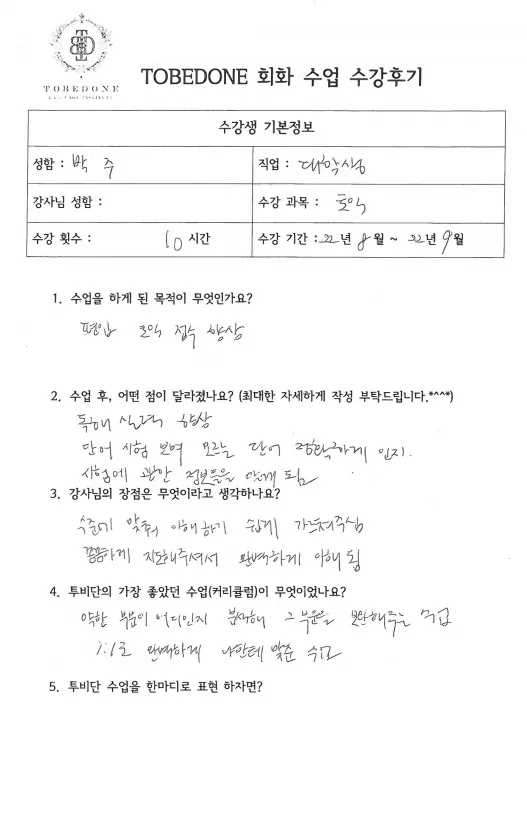 TOBEDONE
TOBEDONE 회화 수업 수강후기
수강생 기본정보
성함 : 박 주
직업 : 대학생
강사님 성함 :
수강 과목 : 토익
수강 횟수 : 10 시간
수강 기간 : 22 년 8 월 ~ 22 년 9 월
1. 수업을 하게 된 목적이 무엇인가요?
편입 토익 점수 향상
2. 수업 후, 어떤 점이 달라졌나요? (최대한 자세하게 작성 부탁드립니다.*^^*)
독해 실력 향상
단어 시험 보며 모르는 단어 정확하게 인지.
시험에 관한 정보들을 알게 됨
3. 강사님의 장점은 무엇이라고 생각하나요?
수준에 맞춰 이해하기 쉽게 가르쳐주심
꼼꼼하게 지도해주셔서 완벽하게 이해 됨
4. 투비단의 가장 좋았던 수업(커리큘럼)이 무엇이었나요?
약한 부분이 어디인지 분석해 그 부분을 보완해주는 수업
1:1로 완벽하게 나한테 맞춘 수업
5. 투비단 수업을 한마디로 표현 하자면?